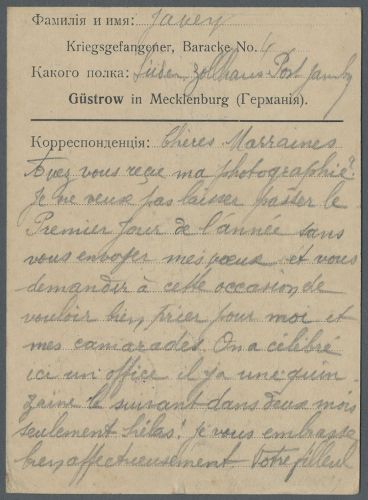 Фамилія и имя: Javey
Kriegsgefangener, Baracke No. 4
Какого полка: Zollhaus Post
Güstrow in Mecklenburg (Германія).
Корреспонденція: Chères Marraines
Avez vous reçue ma photographie?
Je ne veux pas laisser passer le
Premier Jour de l'année sans
vous envoyer mes vœux et vous
demander à cette occasion de
vouloir bien prier pour moi et
mes camarades. On a célébré
ici un office il y a une quin
zaine le suivant dans deux mois
seulement hélas! je vous embrasse
bien affectueusement. Votre filleul